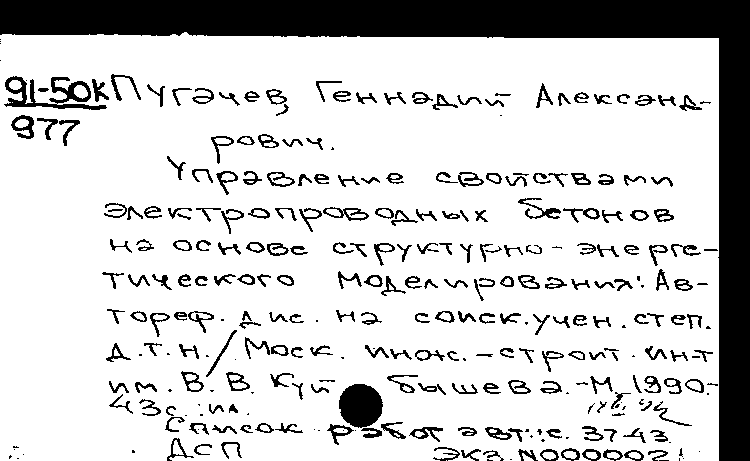 91-50к Пугачев Геннадий Александ-
977
рович.
Управление свойствами
электропроводных бетонов
на основе структурно-энерге-
тического моделирования: Ав-
тореф. дис. на соиск. учен. степ.
д.т.н. / Моск. инж.-строит. ин-т
им. В. В. Куй бышева.-М, 1990.-
43с.:ил.
Список работ авт.: с. 37-43
ДСП Экз. N000002